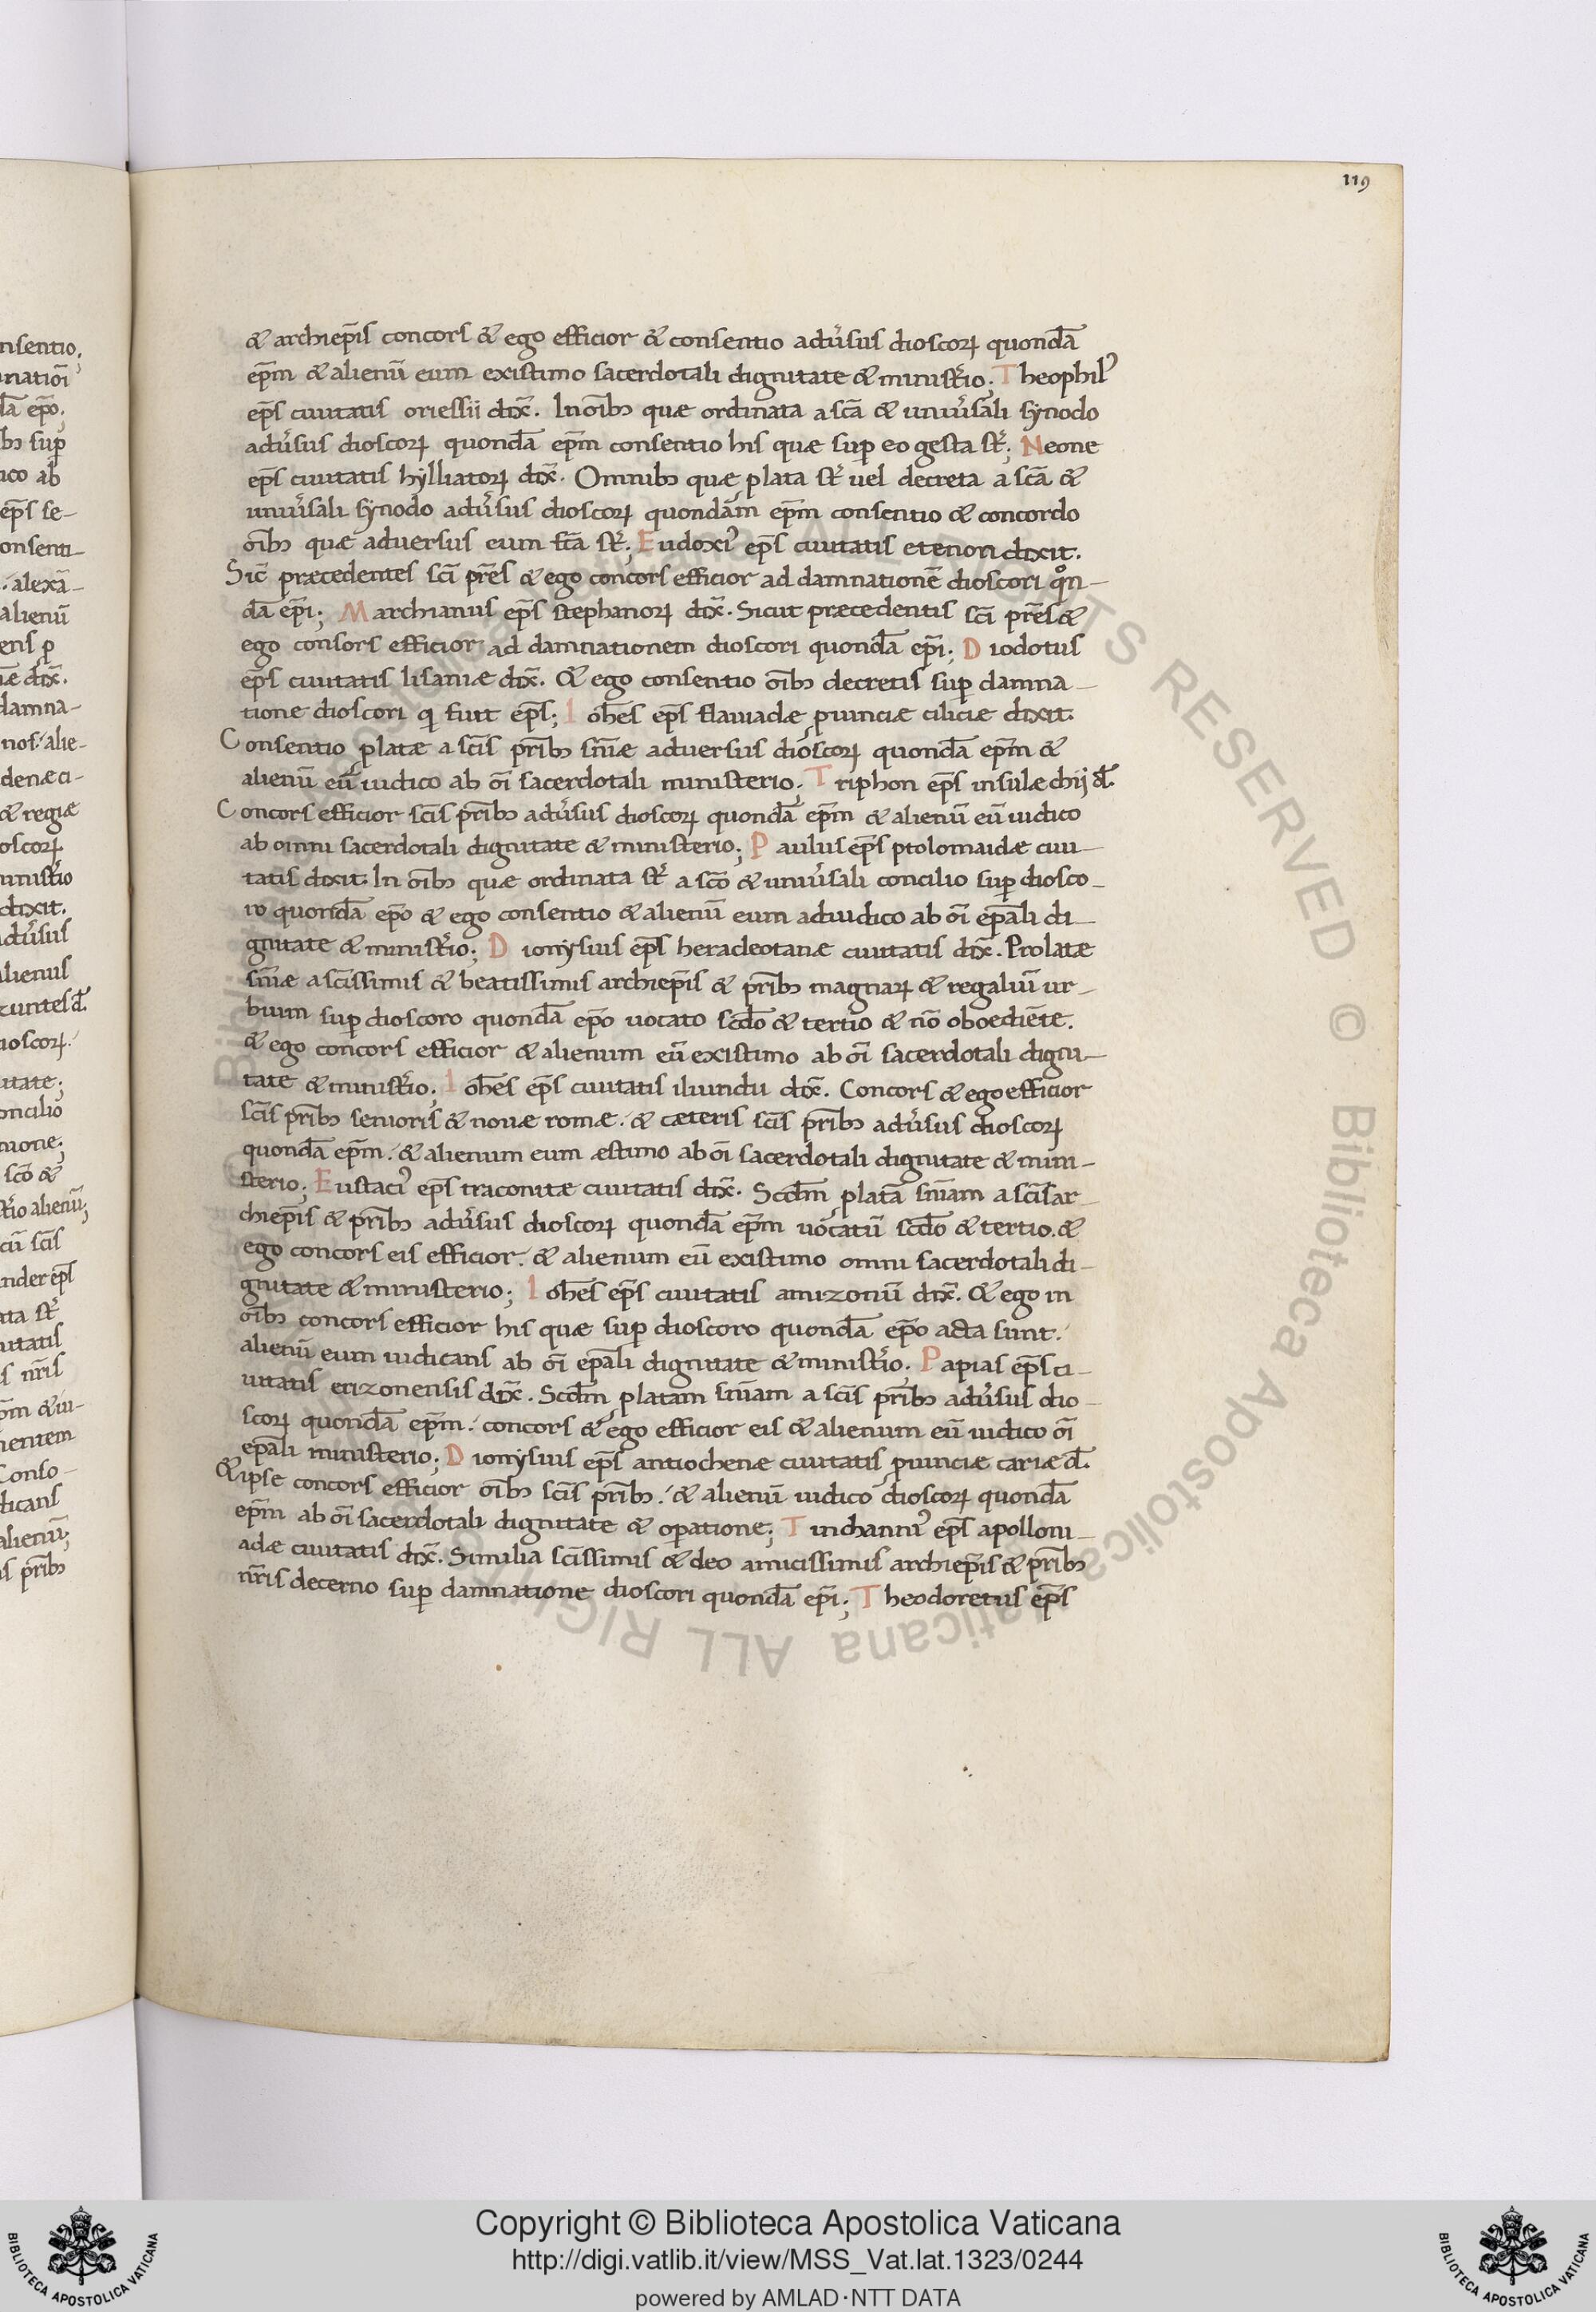 119
& archiep̄is concors & ego efficior & consentio adũsus dioscorꝝ quondā
ep̄m & alienū eum existimo sacerdotali dignitate & ministr̃io; Theophil᾽
ep̄s ciuitatis oriessii dix̄. In oīb; quæ ordinata a sc̄a & uniũsali synodo
adũsus dioscorꝝ quondā ep̄m consentio his quæ suꝑ eo gesta st̃; Neone
ep̄s ciuitatis hylliatorꝝ dix̄. Omnib; quæ ꝓlata st̃ uel decreta a sc̄a &
uniũsali synodo adũsus dioscorꝝ quondām ep̄m consentio & concordo
oīb; quæ aduersus eum fc̄a st̃; Eudoxi᾽ ep̄s ciuitatis etenon dixit.
Sic̄ præcedentes sc̄i pr̄es & ego concors efficior ad damnationē dioscori qͦn-
dā ep̄i; Marchianus ep̄s stephanorꝝ dix̄. Sicut præcedentis sc̄i pr̄es &
ego consors efficior ad damnationem dioscori quondā ep̄i; Diodotus
ep̄s ciuitatis lisaniæ dix̄. & ego consentio oīb; decretis suꝑ damna-
tione dioscori q̣ fuit ep̄s; Ioh̄es ep̄s flauiadæ ꝓuinciæ ciliciæ dixit.
Consentio ꝓlatæ a sc̄is pr̄ib; sn̄iæ aduersus dioscorꝝ quondā ep̄m &
alienū eū iudico ab oī sacerdotali ministerio; Triphon ep̄s insulæ chij d̄.
Concors efficior sc̄is pr̄ib; adũsus dioscorꝝ quondā ep̄m & alienū eū iudico
ab omni sacerdotali dignitate & ministerio; Paulus ep̄s ptolomaidæ ciui-
tatis dixit. In oīb; quæ ordinata st̃ a sc̄o & uniũsali concilio suꝑ diosco-
ro quondā ep̄o & ego consentio & alienū eum adiudico ab oī ep̄ali di-
gnitate & ministr̃io; Dionysius ep̄s heracleotanæ ciuitatis dix̄. Prolatæ
sn̄iæ a sc̄issimis & beatissimis archiep̄is & pr̄ib; magnarꝝ & regaliū ur-
bium suꝑ dioscoro quondā ep̄o uocato sc̄do & tertio & nō oboediēte.
& ego concors efficior & alienum eū existimo ab oī sacerdotali digni-
tate & ministr̃io; Ioh̄es ep̄s ciuitatis iliundu dix̄. Concors & ego efficior
sc̄is pr̄ib; senioris & nouæ romæ. & cæteris sc̄is pr̄ib; adũsus dioscorꝝ
quondā ep̄m. & alienum eum æstimo ab oī sacerdotali dignitate & mini-
sterio; Eustaci᾽ ep̄s traconitæ ciuitatis dix̄. Scd̄m ꝓlatā sn̄iam a sc̄is ar-
chiep̄is & pr̄ib; adũsus dioscorꝝ quondā ep̄m uocatū sc̄do & tertio. &
ego concors eis efficior. & alienum eū existimo omni sacerdotali di-
gnitate & ministerio; Ioh̄es ep̄s ciuitatis amizonū dix̄. & ego in
oīb; concors efficior his quæ suꝑ dioscoro quondā ep̄o acta sunt.
alienū eum iudicans ab oī ep̄ali dignitate & ministr̃io. Papias ep̄s ci-
uitatis erizonensis dix̄. Scd̄m ꝓlatam sn̄iam a sc̄is pr̄ib; adũsus dio-
scorꝝ quondā ep̄m. concors & ego efficior eis & alienum eū iudico oī
ep̄ali ministerio; Dionysius ep̄s antiochenæ ciuitatis ꝓuinciæ cariæ d̄.
& ipse concors efficior oīb; sc̄is pr̄ib;. & alienū iudico dioscorꝝ quondā
ep̄m ab oī sacerdotali dignitate & oꝑatione; Tinchanni᾽ ep̄s apolloni-
adæ ciuitatis dix̄. Similia sc̄issimis & deo amicissimis archiep̄is & pr̄ib;
nr̄is decerno suꝑ damnatione dioscori quondā ep̄i; Theodoretus ep̄s
Copyright © Biblioteca Apostolica Vaticana
http://digi.vatlib.it/view/MSS_Vat.lat.1323/0244
powered by AMLAD·NTT DATA